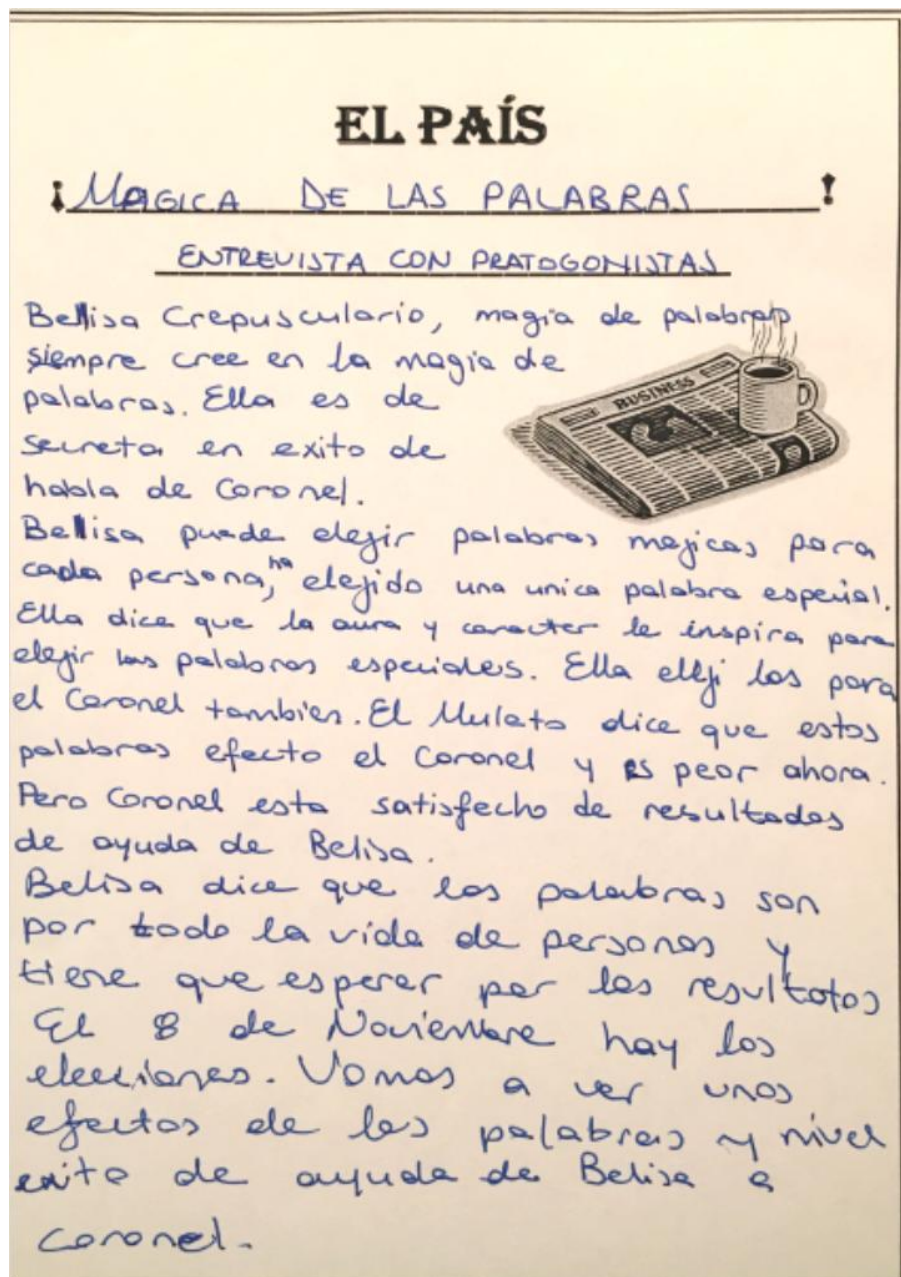 EL PAÍS
¡MAGICA DE LAS PALABRAS!
ENTREVISTA CON PRATOGONISTAS
Bellisa Crepusculario, magia de palabras
siempre cree en la magia de
palabras. Ella es de
secreta en exito de
habla de Coronel.
BUSINESS
Bellisa puede elegir palabras magicas para
cada persona, ha elejido una unica palabra especial.
Ella dice que la aura y caracter le inspira para
elejir las palabras especiales. Ella elleji las para
el Coronel tambien. El Mulato dice que estas
palabras efecto el Coronel y es peor ahora.
Pero Coronel esta satisfecho de resultados
de ayuda de Belisa.
Belisa dice que las palabras son
por todo la vida de personas y
tiene que esperar por los resultatos
El 8 de Noviembre hay los
elecciones. Vamos a ver unos
efectos de las palabras y nivel
exito de ayuda de Belisa a
coronel.